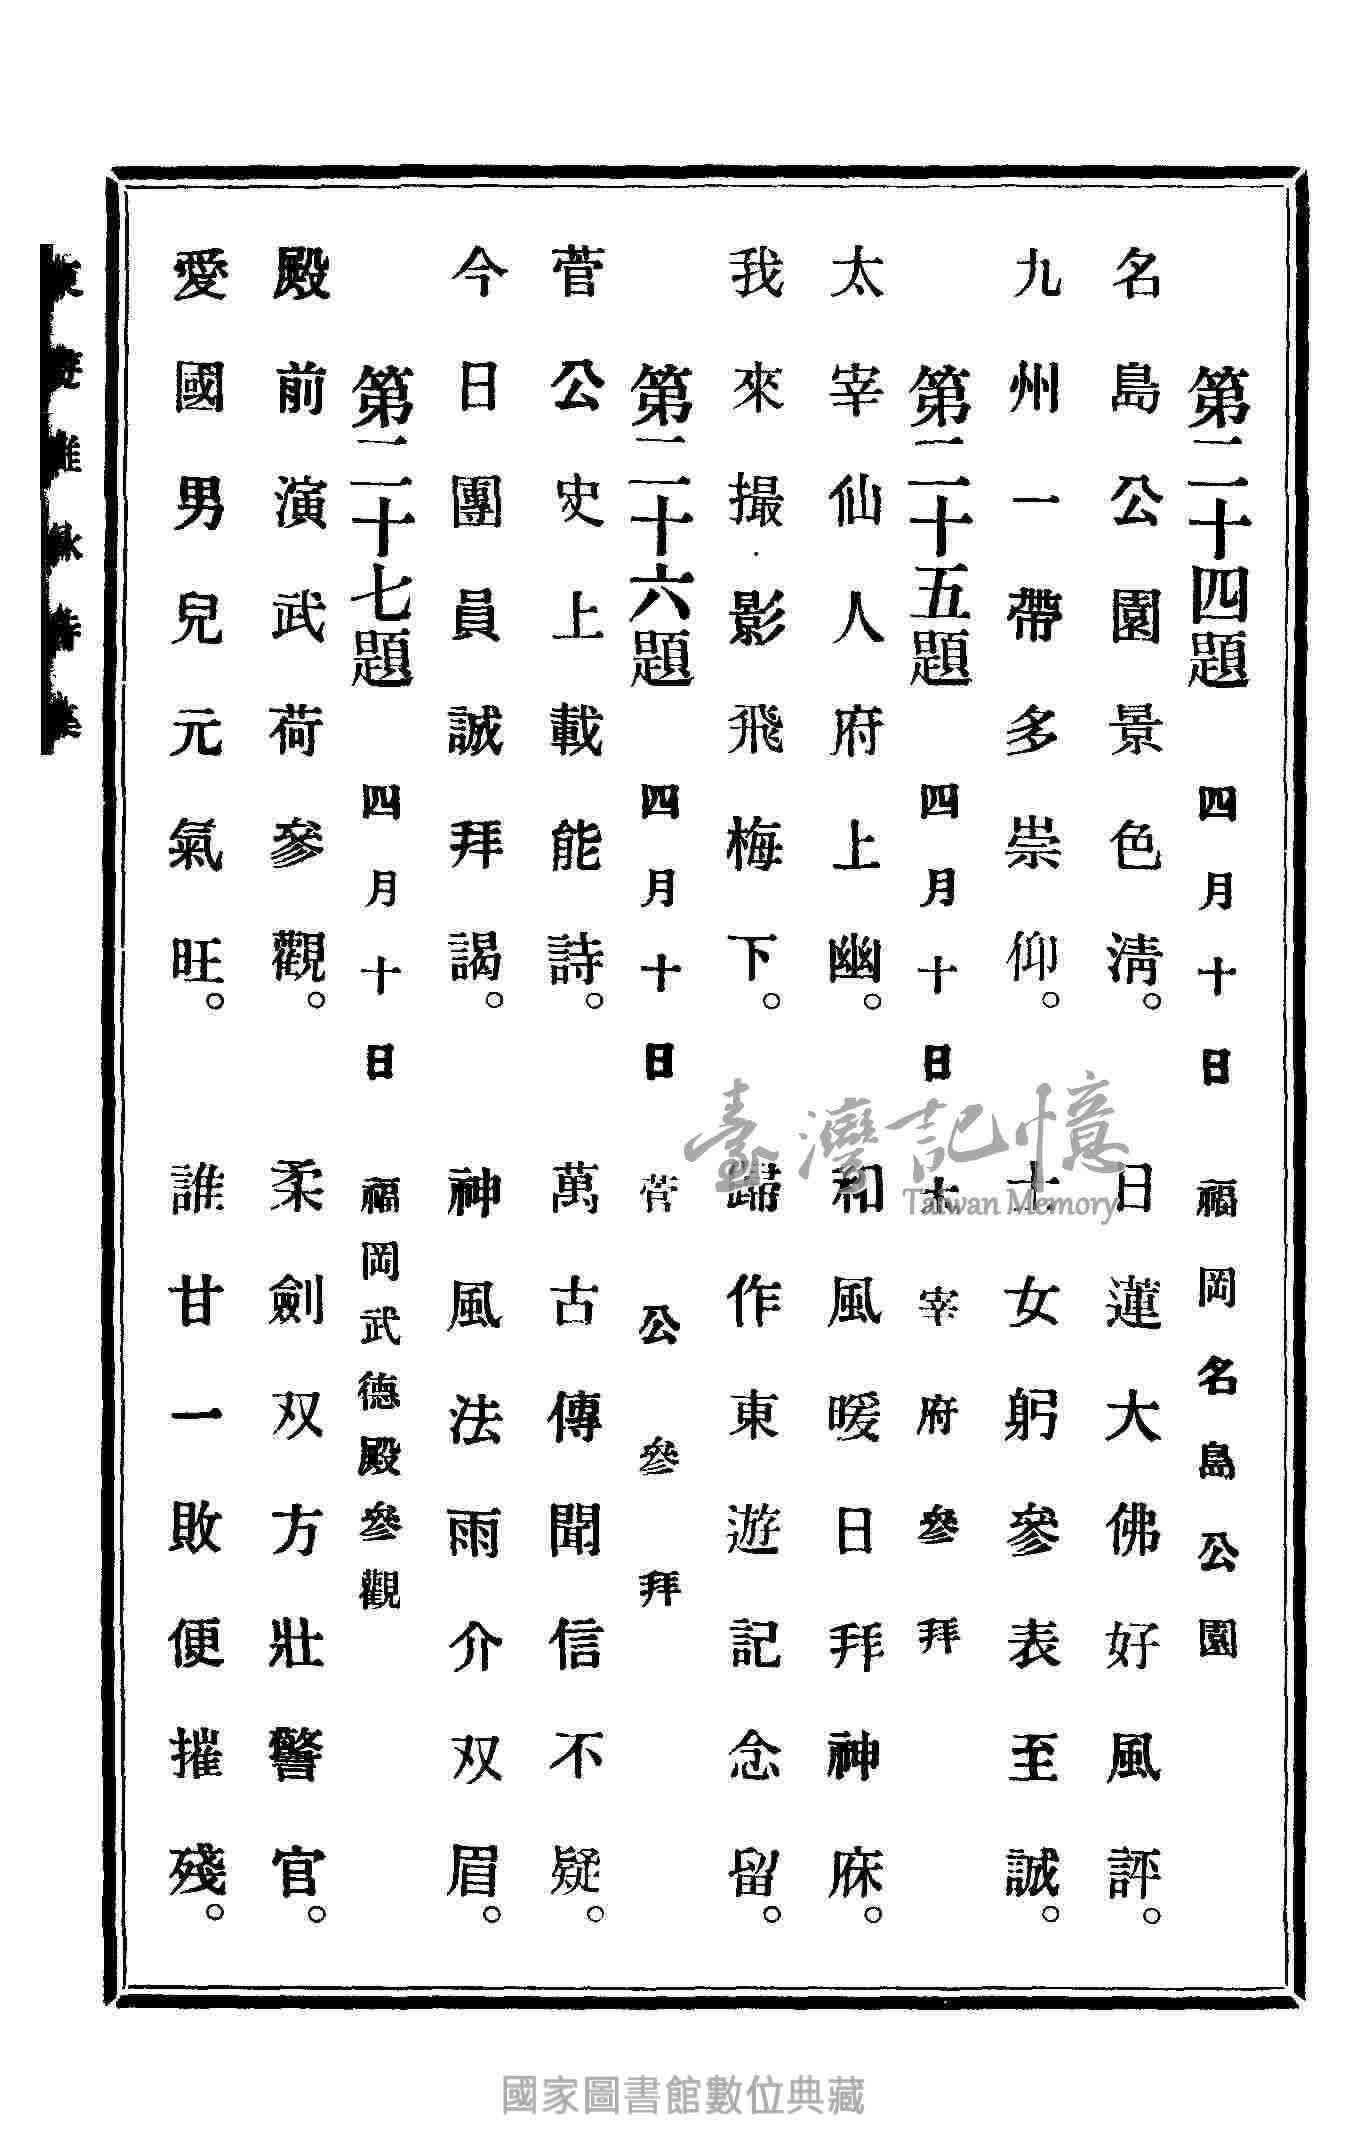 第二十四題 四月十日 福岡名島公園
名島公園景色淸。 日蓮大佛好風評。
九州一帶多崇仰。 士女躬參表至誠。
第二十五題 四月十日 太宰府參拜
太宰仙人府上幽。 和風暖日拜神庥。
我來撮影飛梅下。 歸作東遊記念留。
第二十六題 四月十日 菅公參拜
菅公史上載能詩。 萬古傳聞信不疑。
今日團員誠拜謁。 神風法雨介双眉。
第二十七題 四月十日 福岡武德殿參觀
殿前演武荷參觀。 柔劍双方壯警官。
愛國男兒元氣旺。 誰甘一敗便摧殘。
東遊雜詠詩集
臺灣記憶
Taiwan Memory
國家圖書館數位典藏